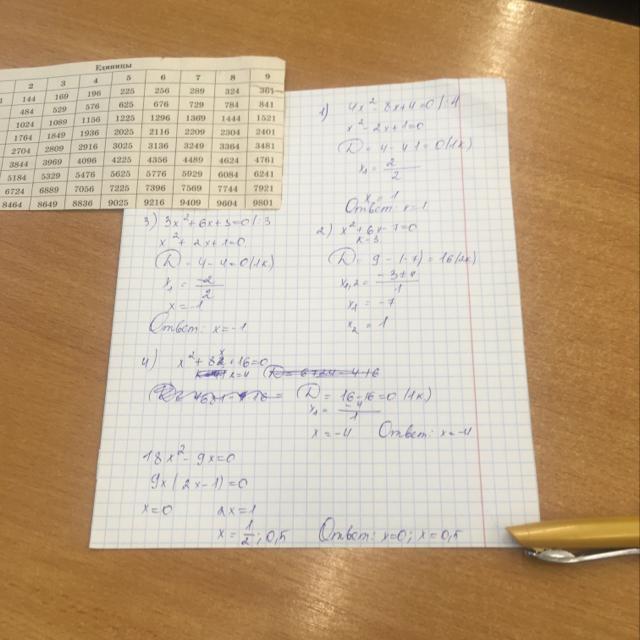 Единицы
2 3 4 5 6 7 8 9
1 144 169 196 225 256 289 324 361
484 529 576 625 676 729 784 841
1024 1089 1156 1225 1296 1369 1444 1521
1764 1849 1936 2025 2116 2209 2304 2401
2704 2809 2916 3025 3136 3249 3364 3481
3844 3969 4096 4225 4356 4489 4624 4761
5184 5329 5476 5625 5776 5929 6084 6241
6724 6889 7056 7225 7396 7569 7744 7921
8464 8649 8836 9025 9216 9409 9604 9801
1) 4x² - 8x + 4 = 0 /:4
x² - 2x + 1 = 0
D = 4 - 4·1 = 0 (1к)
x₁ = 2/2
x = 1
Ответ: x = 1
2) x² + 6x - 7 = 0
k = 3
D = 9 - (-7) = 16 (2к)
x₁,₂ = -3±4/1
x₁ = -7
x₂ = 1
3) 3x² + 6x + 3 = 0 /:3
x² + 2x + 1 = 0
D = 4 - 4 = 0 (1к)
x₁ = -2/2
x = -1
Ответ: x = -1
4) x² + 8x + 16 = 0
k = 4
D = 16 - 16 = 0 (1к)
x₁ = -4/1
x = -4 Ответ: x = -4
18x² - 9x = 0
9x (2x - 1) = 0
x = 0 2x = 1
x = 1/2; 0,5 Ответ: x = 0; x = 0,5